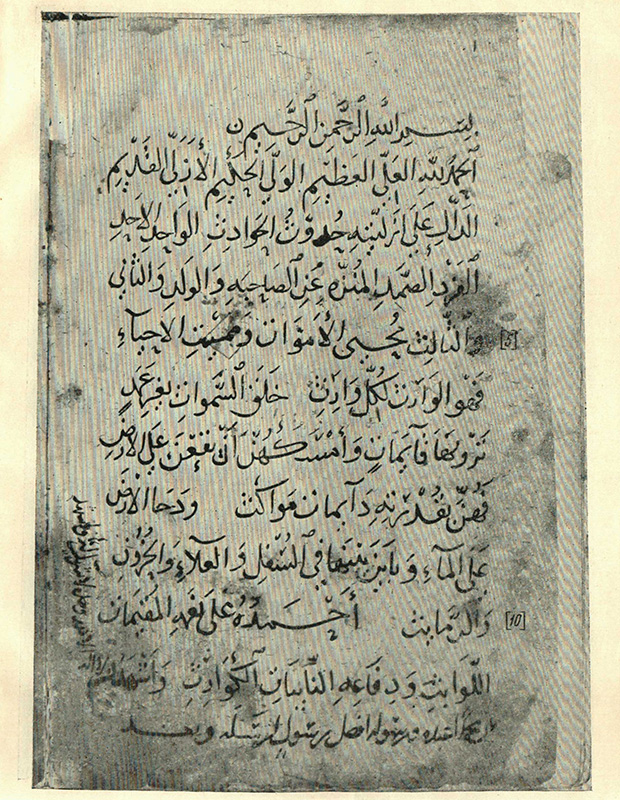 بِسْمِ اللهِ الرَّحْمٰنِ الرَّحِيمِ
اَلحَمْدُ للهِ العَلِيِّ العَظِيْمِ الوَلِيِّ الحَلِيْمِ الأَزَلِيِّ القَدِيْمِ
الدَّالِّ عَلَى ازَلِيَّتِهِ حُدُوْثُ الحَوَادِثِ الوَاحِدِ الاحَدِ
الفَرْدِ الصَّمَدِ المُنَزَّهِ عَنِ الصَاحِبَهِ وَالوَلَدِ وَالثَّانِي
وَالثَّالِثِ مُحْيِي الأَمْوَاتِ وَمُمِيْتِ الاحيَاءِ [5]
فَهُوَ الوَارِثُ لِكُلِّ وَارِثٍ خَلَقَ السَّمٰوَاتِ بغَيرِ عَمَدٍ
تَرَوْنَهَا قَايِمَاتٍ وَأَمْسَكَهُنَّ أَنْ تَقَعْنَ عَلَى الارْضِ
فَهُنَّ بِقُدْرَتِهِ دَايِمَاتٌ مَوَاكِثُ وَدَحَا الأَرْضَ
عَلَى المَاءِ وَبَايَنَ بَيْنَهَا فِي السُّفْلِ وَالعَلَاءِ وَالحُزُوْنِ
وَالدَّمَايِثِ أَحْمَدُهُ عَلَى نِعَمِهِ المُقِيْمَاتِ [10]
اللَّوَابِثِ وَدِفَاعِهِ النَّايِبَاتِ الكَوَارِثِ وَاشْهَدُ
افضل رسول ارسله وبعد